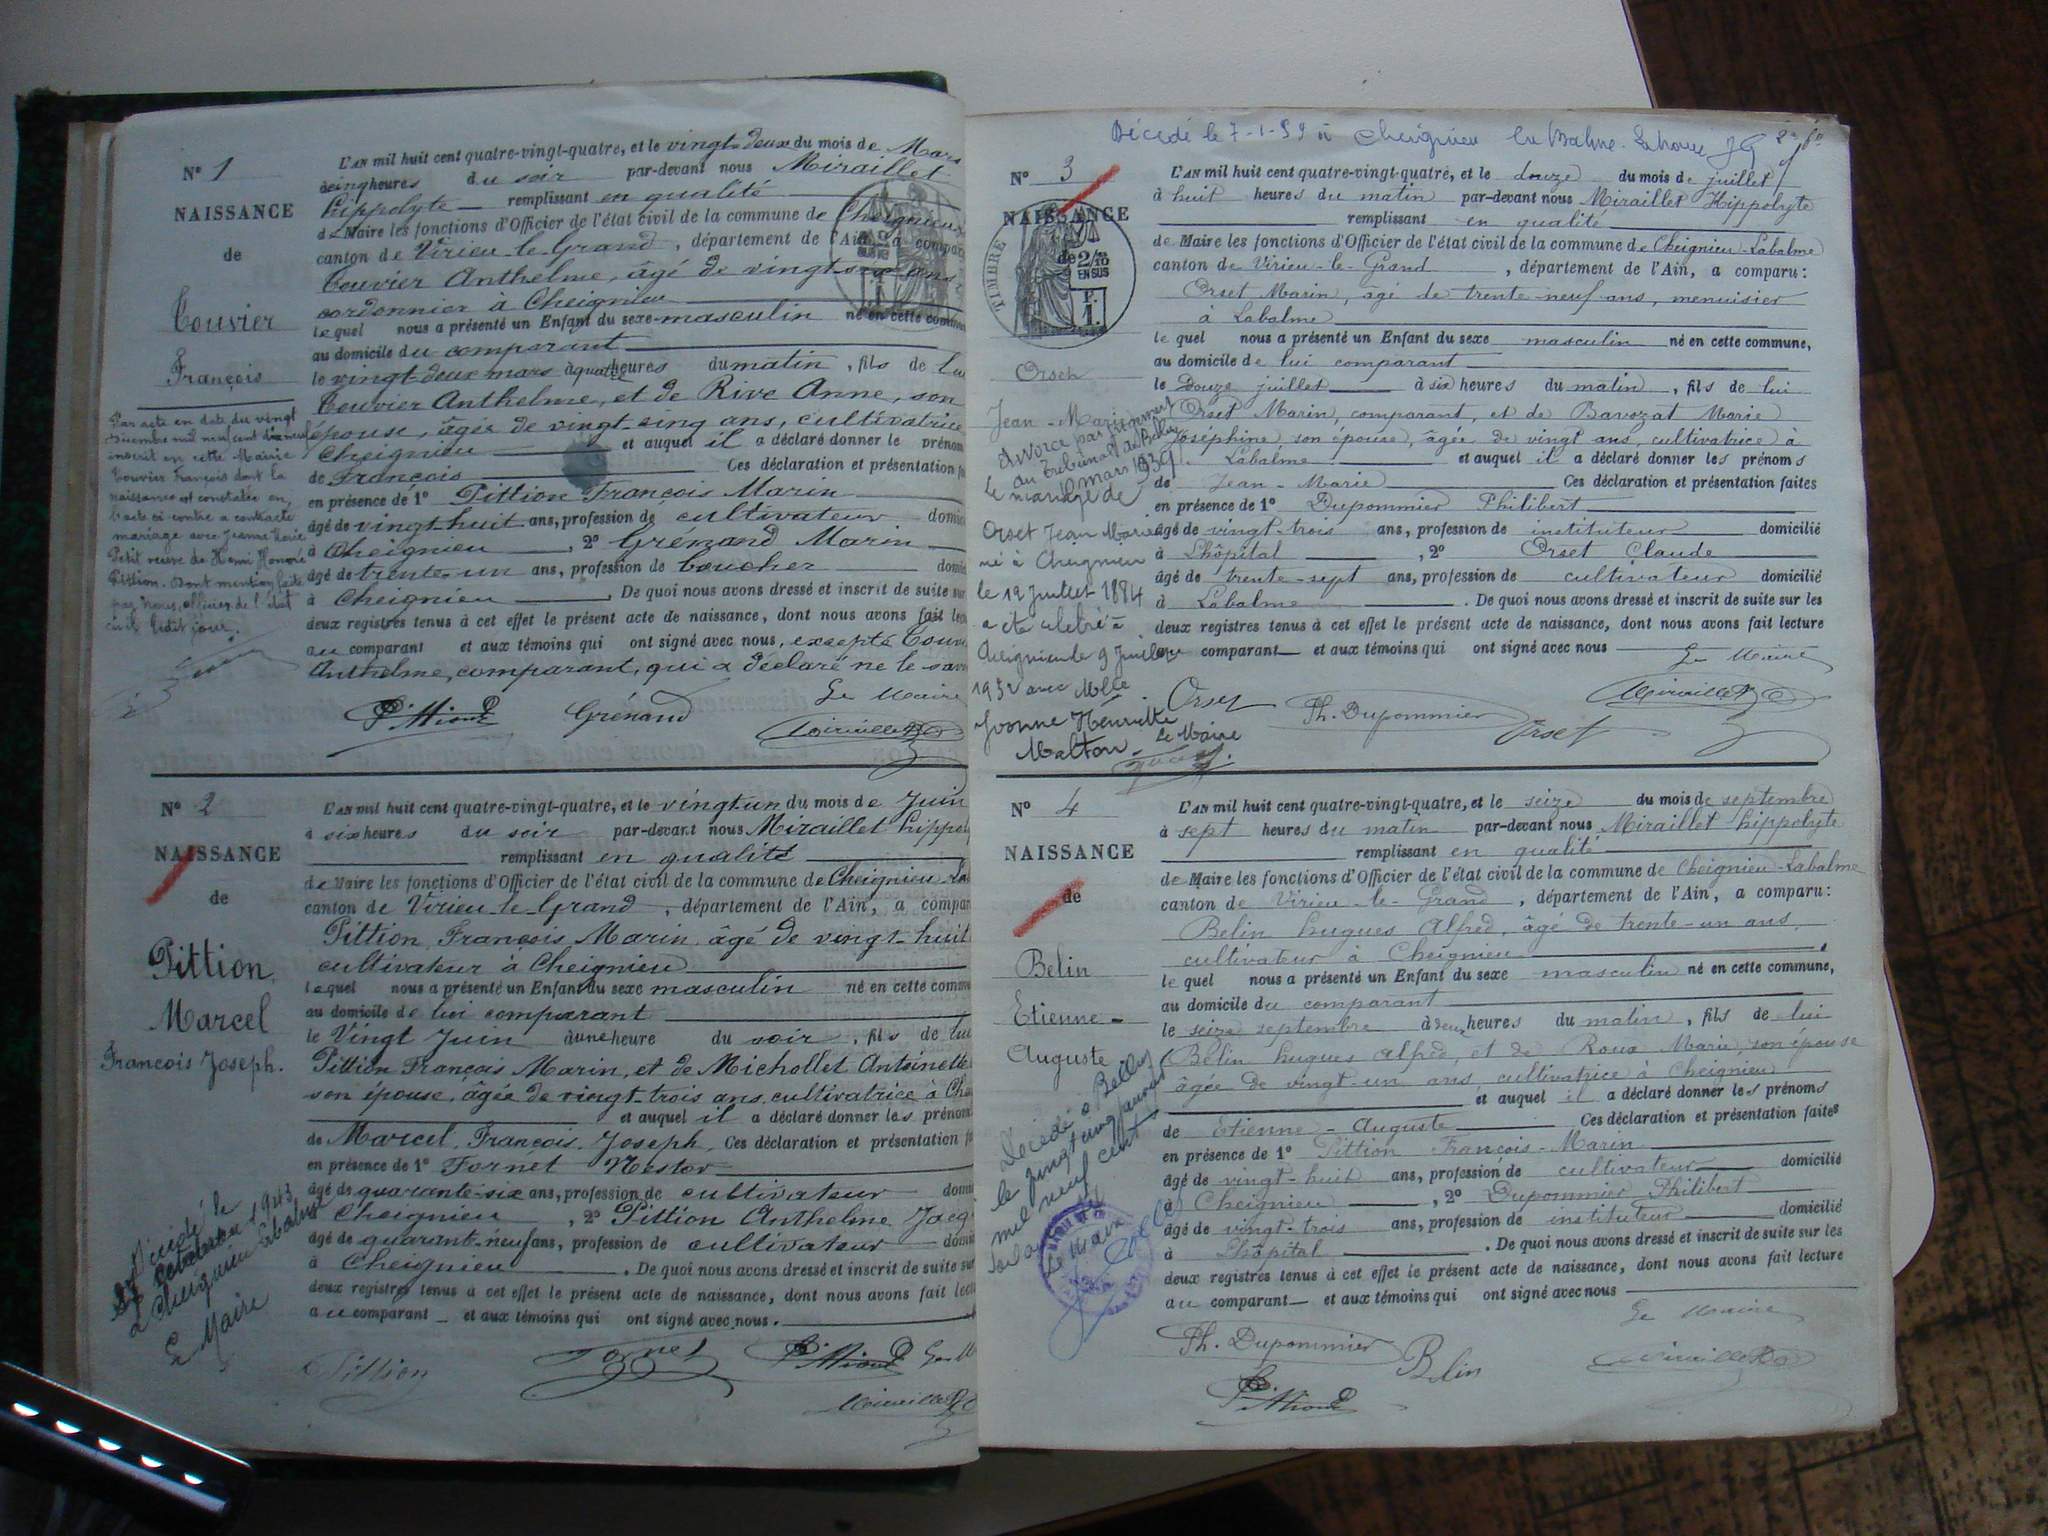 N° 1
NAISSANCE
de
Couvier
François
Par acte en date du vingt
décembre mil neuf cent dix neuf
inscrit en cette Mairie
Couvier François dont la
naissance est constatée en
l'acte ci-contre a contracté
mariage avec Jeanne Marie
Petit veuve de Henri Honoré
Pittion. Dont mention faite
par nous, officier de l'état
civil ledit jour.
L'AN mil huit cent quatre-vingt-quatre, et le vingt-deux du mois de Mars
à cinq heures du soir par-devant nous Miraillet
hippolyte remplissant en qualité
de Maire les fonctions d'Officier de l'état civil de la commune de Cheignieu
canton de Virieu-le-Grand, département de l'Ain, a comparu
Couvier Anthelme, âgé de vingt-six ans
cordonnier à Cheignieu
lequel nous a présenté un Enfant du sexe masculin né en cette commune
au domicile du comparant
le vingt-deux mars à quatre heures du matin, fils de lui
Couvier Anthelme, et de Rive Anne, son
épouse, âgée de vingt-cinq ans, cultivatrice
Cheignieu et auquel il a déclaré donner le prénom
de François Ces déclaration et présentation
en présence de 1° Pittion François Marin
âgé de vingt-huit ans, profession de cultivateur
à Cheignieu, 2° Grénand Marin
âgé de trente-un ans, profession de boucher
à Cheignieu. De quoi nous avons dressé et inscrit de suite sur
deux registres tenus à cet effet le présent acte de naissance, dont nous avons fait
au comparant et aux témoins qui ont signé avec nous, excepté
Anthelme, comparant, qui a déclaré ne le
Pittion Grénand Le Maire
Miraillet
N° 2
NAISSANCE
de
Pittion
Marcel
François Joseph.
Décédé le
1943
à Cheignieu Labalme
Le Maire
L'AN mil huit cent quatre-vingt-quatre, et le vingt-un du mois de Juin
à six heures du soir par-devant nous Miraillet
remplissant en qualité
de Maire les fonctions d'Officier de l'état civil de la commune de Cheignieu
canton de Virieu-le-Grand, département de l'Ain, a
Pittion François Marin, âgé de vingt-huit
cultivateur à Cheignieu
lequel nous a présenté un Enfant du sexe masculin né en cette
au domicile de lui comparant
le Vingt Juin à une heure du soir, fils de lui
Pittion François Marin, et de Michollet Antoinette
son épouse, âgée de vingt-trois ans, cultivatrice à
et auquel il a déclaré donner les
de Marcel, François, Joseph. Ces déclaration et présentation
en présence de 1° Fornet Nestor
âgé de quarante-six ans, profession de cultivateur
à Cheignieu, 2° Pittion Anthelme
âgé de quarant-neuf ans, profession de cultivateur
à Cheignieu. De quoi nous avons dressé et inscrit de suite sur
deux registres tenus à cet effet le présent acte de naissance, dont nous avons fait
au comparant et aux témoins qui ont signé avec nous.
Pittion Fornet Pittion
Miraillet
Décédé le 7-1-59 à Cheignieu la Balme
N° 3
NAISSANCE
de
TIMBRE
2/10
EN SUS
F.
1.
Orset
Jean-Marie
divorcé par jugement
du Tribunal de Belley
mars 1939
Le mariage de
Orset Jean Marie
né à Cheignieu
le 12 Juillet 1884
a été célébré à
Cheignieu le 9 Juillet
1932 avec Melle
Yvonne Henriette
Malton
Le Maire
L'AN mil huit cent quatre-vingt-quatre, et le douze du mois de juillet
à huit heures du matin par-devant nous Miraillet Hippolyte
remplissant en qualité
de Maire les fonctions d'Officier de l'état civil de la commune de Cheignieu-Labalme
canton de Virieu-le-Grand, département de l'Ain, a comparu:
Orset Marin, âgé de trente-neuf ans, menuisier
à Labalme
lequel nous a présenté un Enfant du sexe masculin né en cette commune,
au domicile de lui comparant
le Douze juillet à six heures du matin, fils de lui
Orset Marin, comparant, et de Bavozat Marie
Joséphine, son épouse, âgée de vingt ans, cultivatrice à
Labalme et auquel il a déclaré donner les prénoms
de Jean-Marie Ces déclaration et présentation faites
en présence de 1° Dupommier Philibert
âgé de vingt-trois ans, profession de instituteur domicilié
à Lhôpital, 2° Orset Claude
âgé de trente-sept ans, profession de cultivateur domicilié
à Labalme. De quoi nous avons dressé et inscrit de suite sur les
deux registres tenus à cet effet le présent acte de naissance, dont nous avons fait lecture
au comparant et aux témoins qui ont signé avec nous
Le Maire
Orset Ph. Dupommier Orset Miraillet
N° 4
NAISSANCE
de
Belin
Etienne-
Auguste
Décédé à Belley
le vingt cinq
mil neuf cent
Le Maire
L'AN mil huit cent quatre-vingt-quatre, et le seize du mois de septembre
à sept heures du matin par-devant nous Miraillet hippolyte
remplissant en qualité
de Maire les fonctions d'Officier de l'état civil de la commune de Cheignieu-Labalme
canton de Virieu-le-Grand, département de l'Ain, a comparu:
Belin hugues alfred, âgé de trente-un ans,
cultivateur à Cheignieu.
lequel nous a présenté un Enfant du sexe masculin né en cette commune,
au domicile du comparant
le seize septembre à deux heures du matin, fils de lui
Belin hugues alfred, et de Roux Marie, son épouse
âgée de vingt-un ans, cultivatrice à Cheignieu
et auquel il a déclaré donner les prénoms
de Etienne-Auguste Ces déclaration et présentation faites
en présence de 1° Pittion François-Marin
âgé de vingt-huit ans, profession de cultivateur domicilié
à Cheignieu, 2° Dupommier Philibert
âgé de vingt-trois ans, profession de instituteur domicilié
à Lhôpital. De quoi nous avons dressé et inscrit de suite sur les
deux registres tenus à cet effet le présent acte de naissance, dont nous avons fait lecture
au comparant et aux témoins qui ont signé avec nous
Le Maire
Ph. Dupommier Belin Miraillet
Pittion